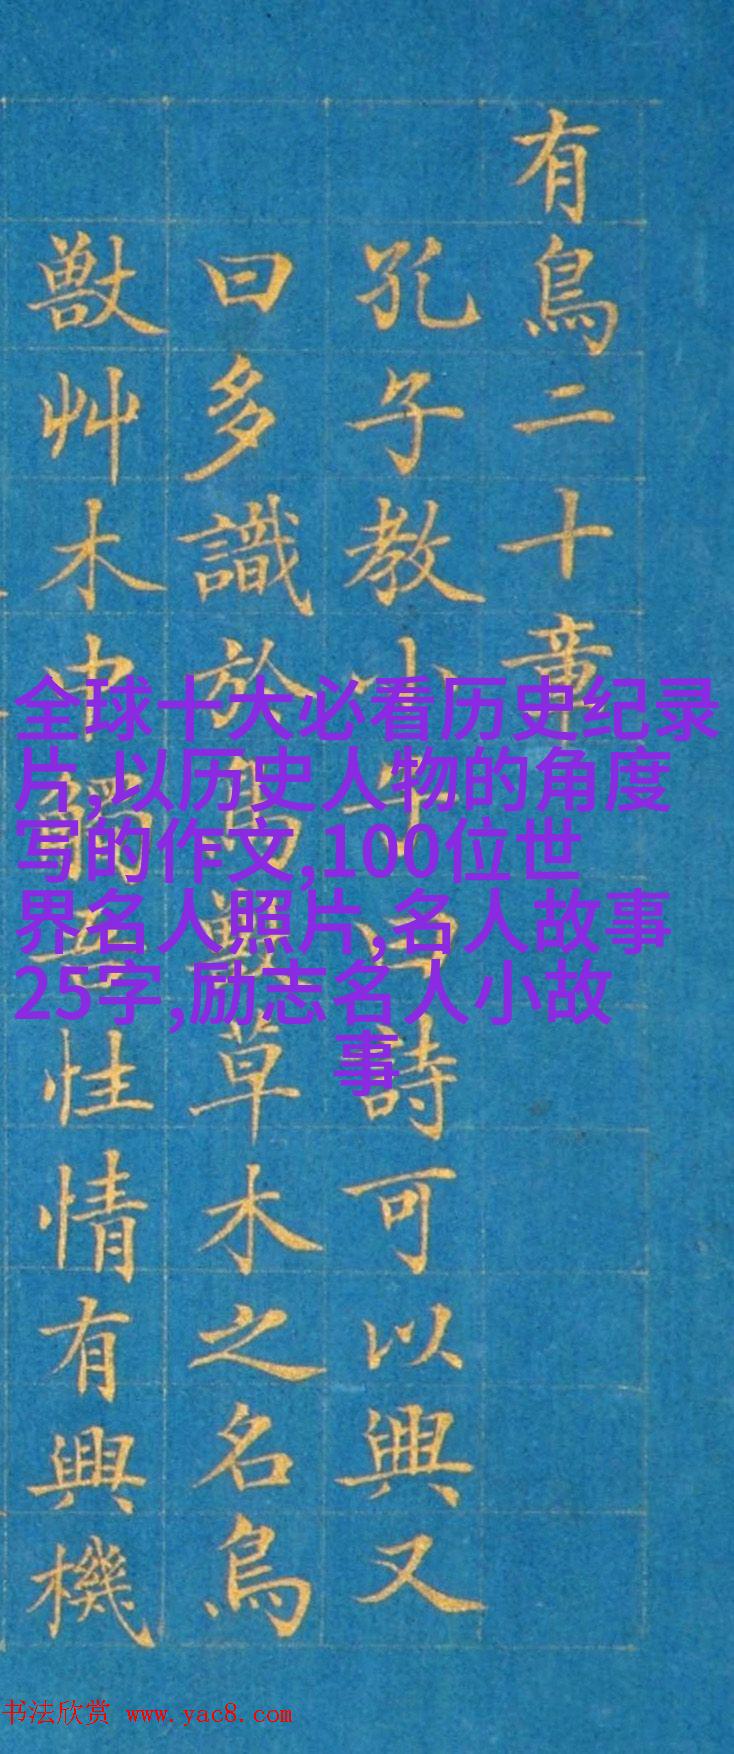 有鳥二十章
孔子教小詩可以興又
曰多識於鳥獸草木之名鳥
獸艸木中性情有興機
全球十大必看历史纪录
片,以历史人物的角度
写的作文,100位世
界名人照片,名人故事
25字,励志名人小故
事
书法欣赏 www.yac8.com